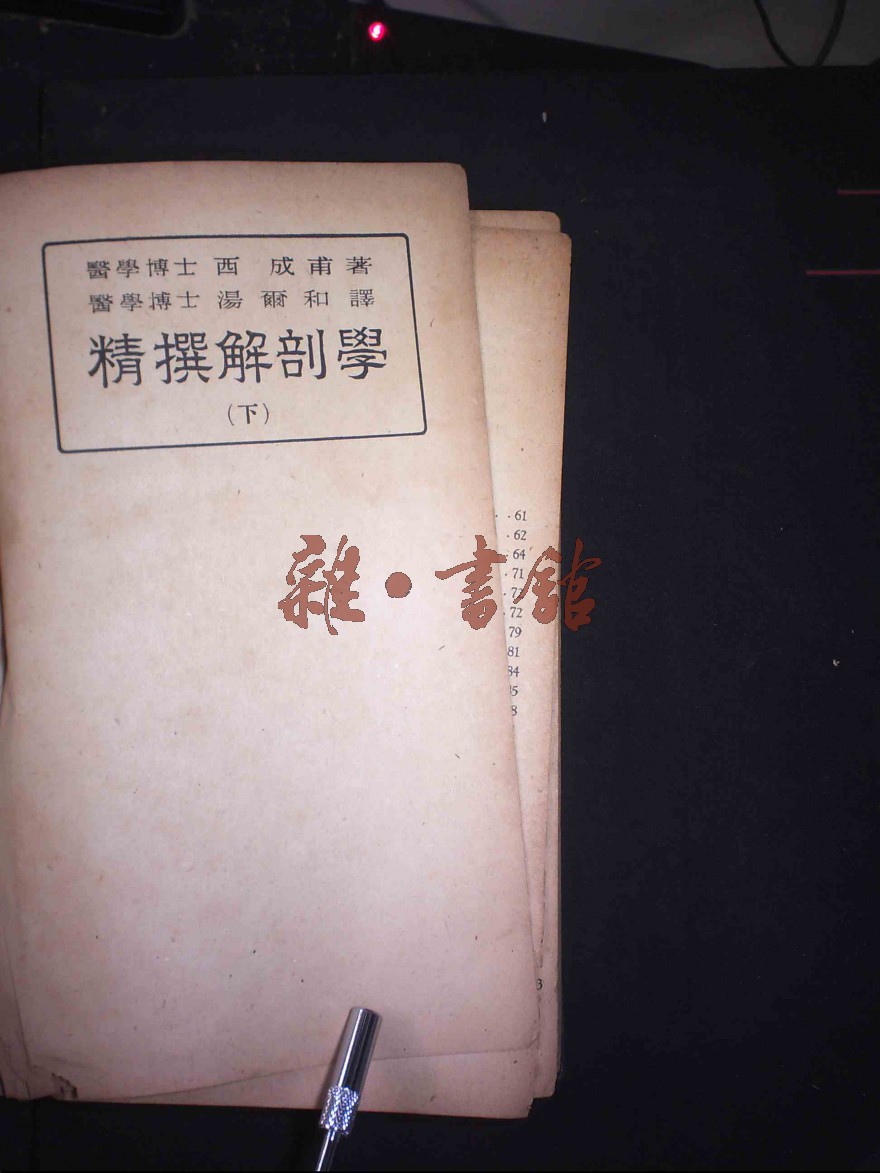 醫學博士 西 成甫著
醫學博士 湯爾和譯
精撰解剖學
(下)
· · 61
· 62
· 64
· 71
· 72
79
81
84
雜·書館